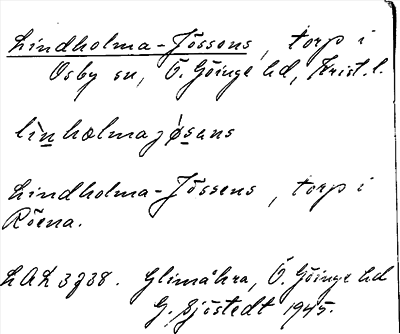 Lindholma-Jössens, torp i
Osby sn, Ö. Göinge hd, Krist. l.
linhœlmajøsans
Lindholma-Jössens, torp i
Röena.
LAL 3738. Glimåkra, Ö. Göinge hd
G. Sjöstedt 1945.